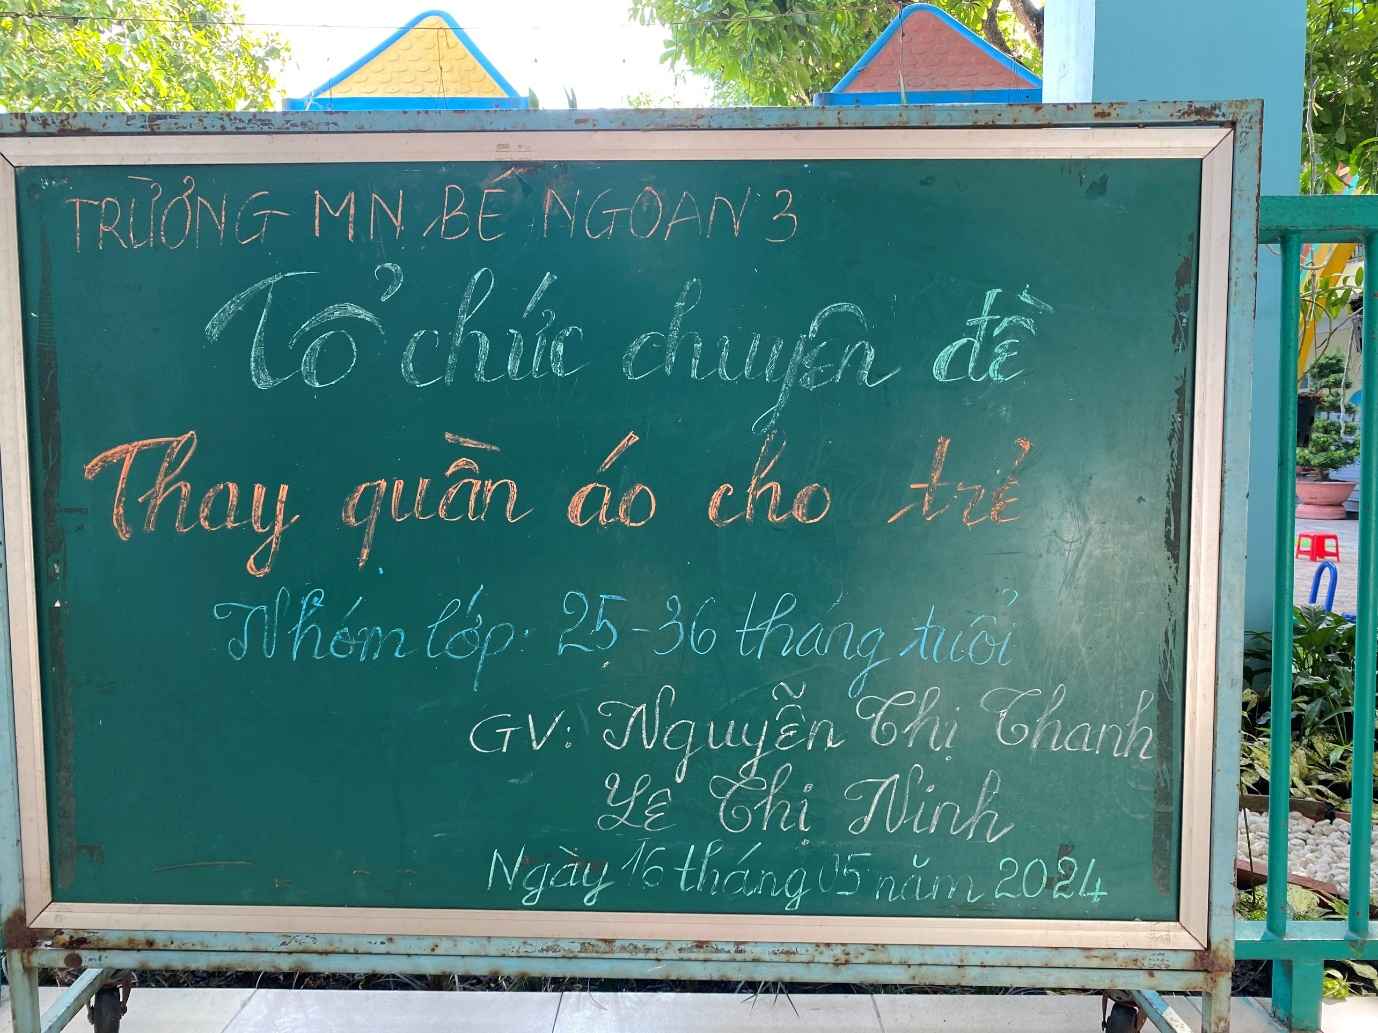 TRƯỜNG MN BÉ NGOAN 3
Tổ chức chuyên đề
Thay quần áo cho trẻ
Nhóm lớp: 25-36 tháng tuổi
GV: Nguyễn Thị Thanh
Lê Thị Ninh
Ngày 16 tháng 05 năm 2024